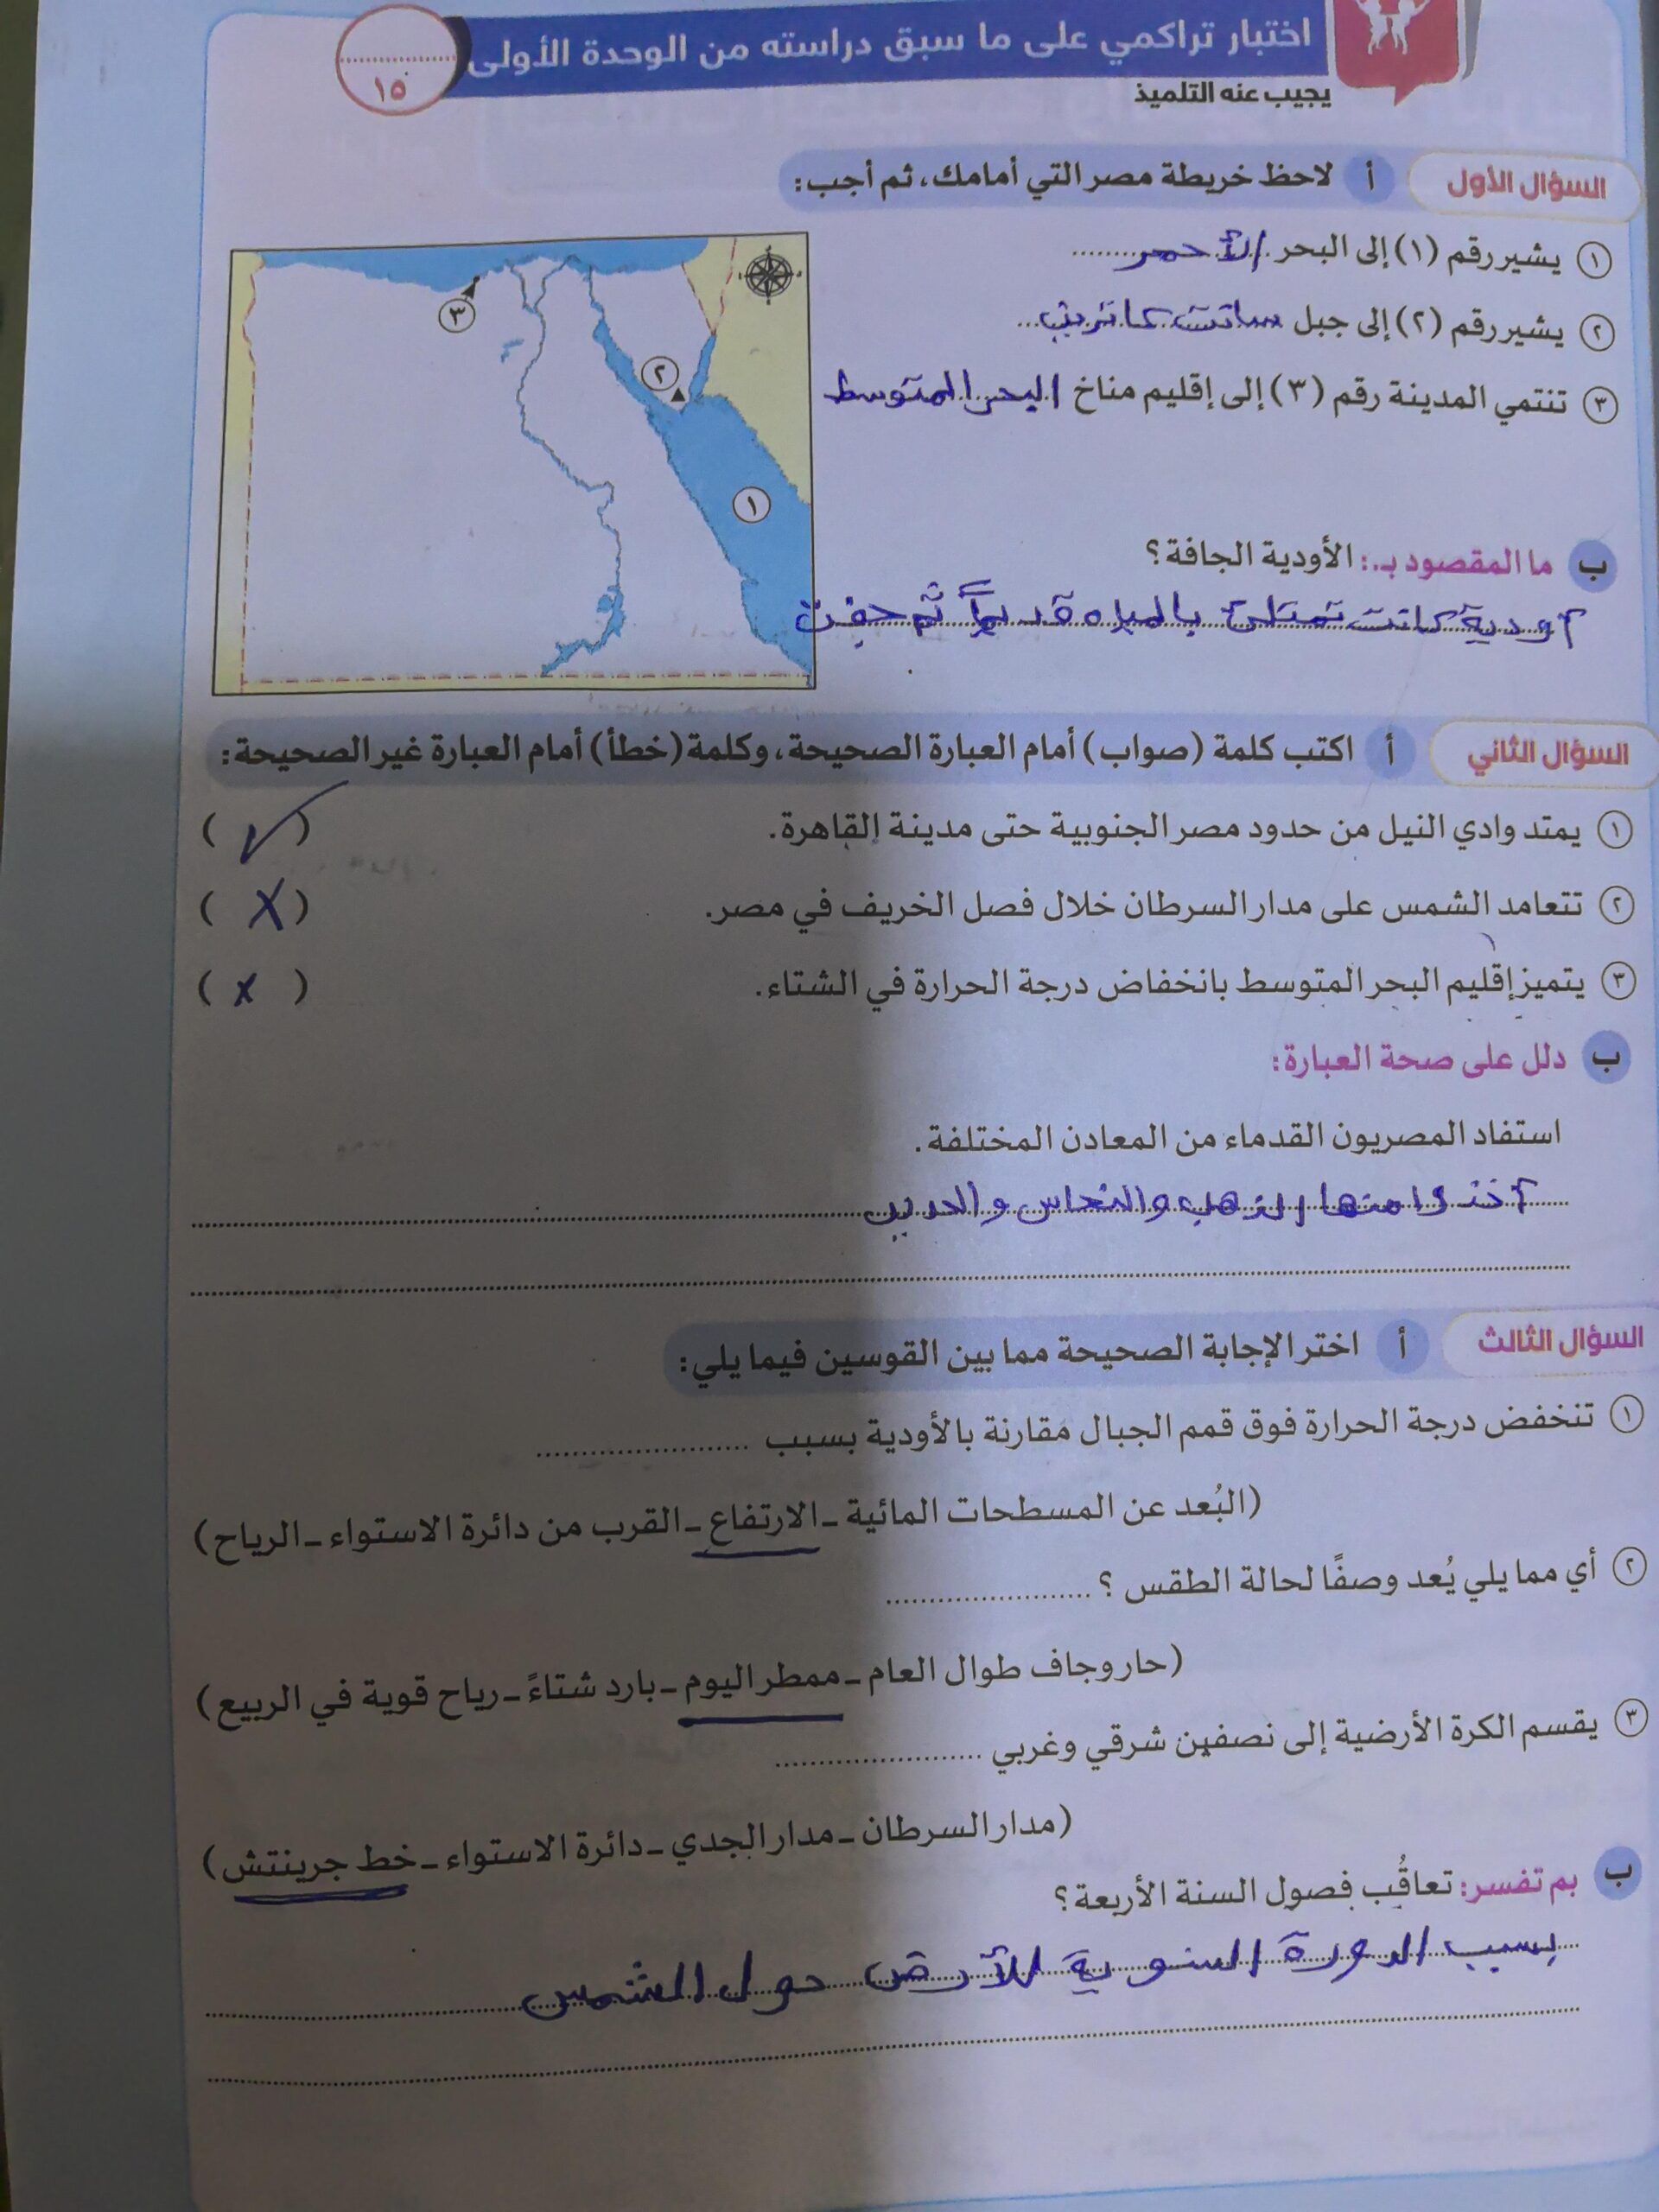 اختبار تراكمي على ما سبق دراسته من الوحدة الأولى
١٥
يجيب عنه التلميذ
السؤال الأول أ لاحظ خريطة مصر التي أمامك، ثم أجب:
١ يشير رقم (١) إلى البحر الأحمر
٢ يشير رقم (٢) إلى جبل سانت كاترين
٣ تنتمي المدينة رقم (٣) إلى إقليم مناخ البحر المتوسط
٣
٢
١
ب ما المقصود بـ: الأودية الجافة؟
أودية كانت تمتلئ بالمياه قديماً ثم جفت
السؤال الثاني أ اكتب كلمة (صواب) أمام العبارة الصحيحة، وكلمة (خطأ) أمام العبارة غير الصحيحة:
١ يمتد وادي النيل من حدود مصر الجنوبية حتى مدينة القاهرة. (✓)
٢ تتعامد الشمس على مدار السرطان خلال فصل الخريف في مصر. (X)
٣ يتميز إقليم البحر المتوسط بانخفاض درجة الحرارة في الشتاء. (x)
ب دلل على صحة العبارة:
استفاد المصريون القدماء من المعادن المختلفة.
أخذوا منها الذهب والنحاس والحديد
السؤال الثالث أ اختر الإجابة الصحيحة مما بين القوسين فيما يلي:
١ تنخفض درجة الحرارة فوق قمم الجبال مقارنة بالأودية بسبب ......................
(البُعد عن المسطحات المائية - الارتفاع - القرب من دائرة الاستواء - الرياح)
٢ أي مما يلي يُعد وصفًا لحالة الطقس ؟ ......................
(حار وجاف طوال العام - ممطر اليوم - بارد شتاءً - رياح قوية في الربيع)
٣ يقسم الكرة الأرضية إلى نصفين شرقي وغربي ......................
(مدار السرطان - مدار الجدي - دائرة الاستواء - خط جرينتش)
ب بم تفسر: تعاقُب فصول السنة الأربعة؟
بسبب الدورة السنوية للأرض حول الشمس